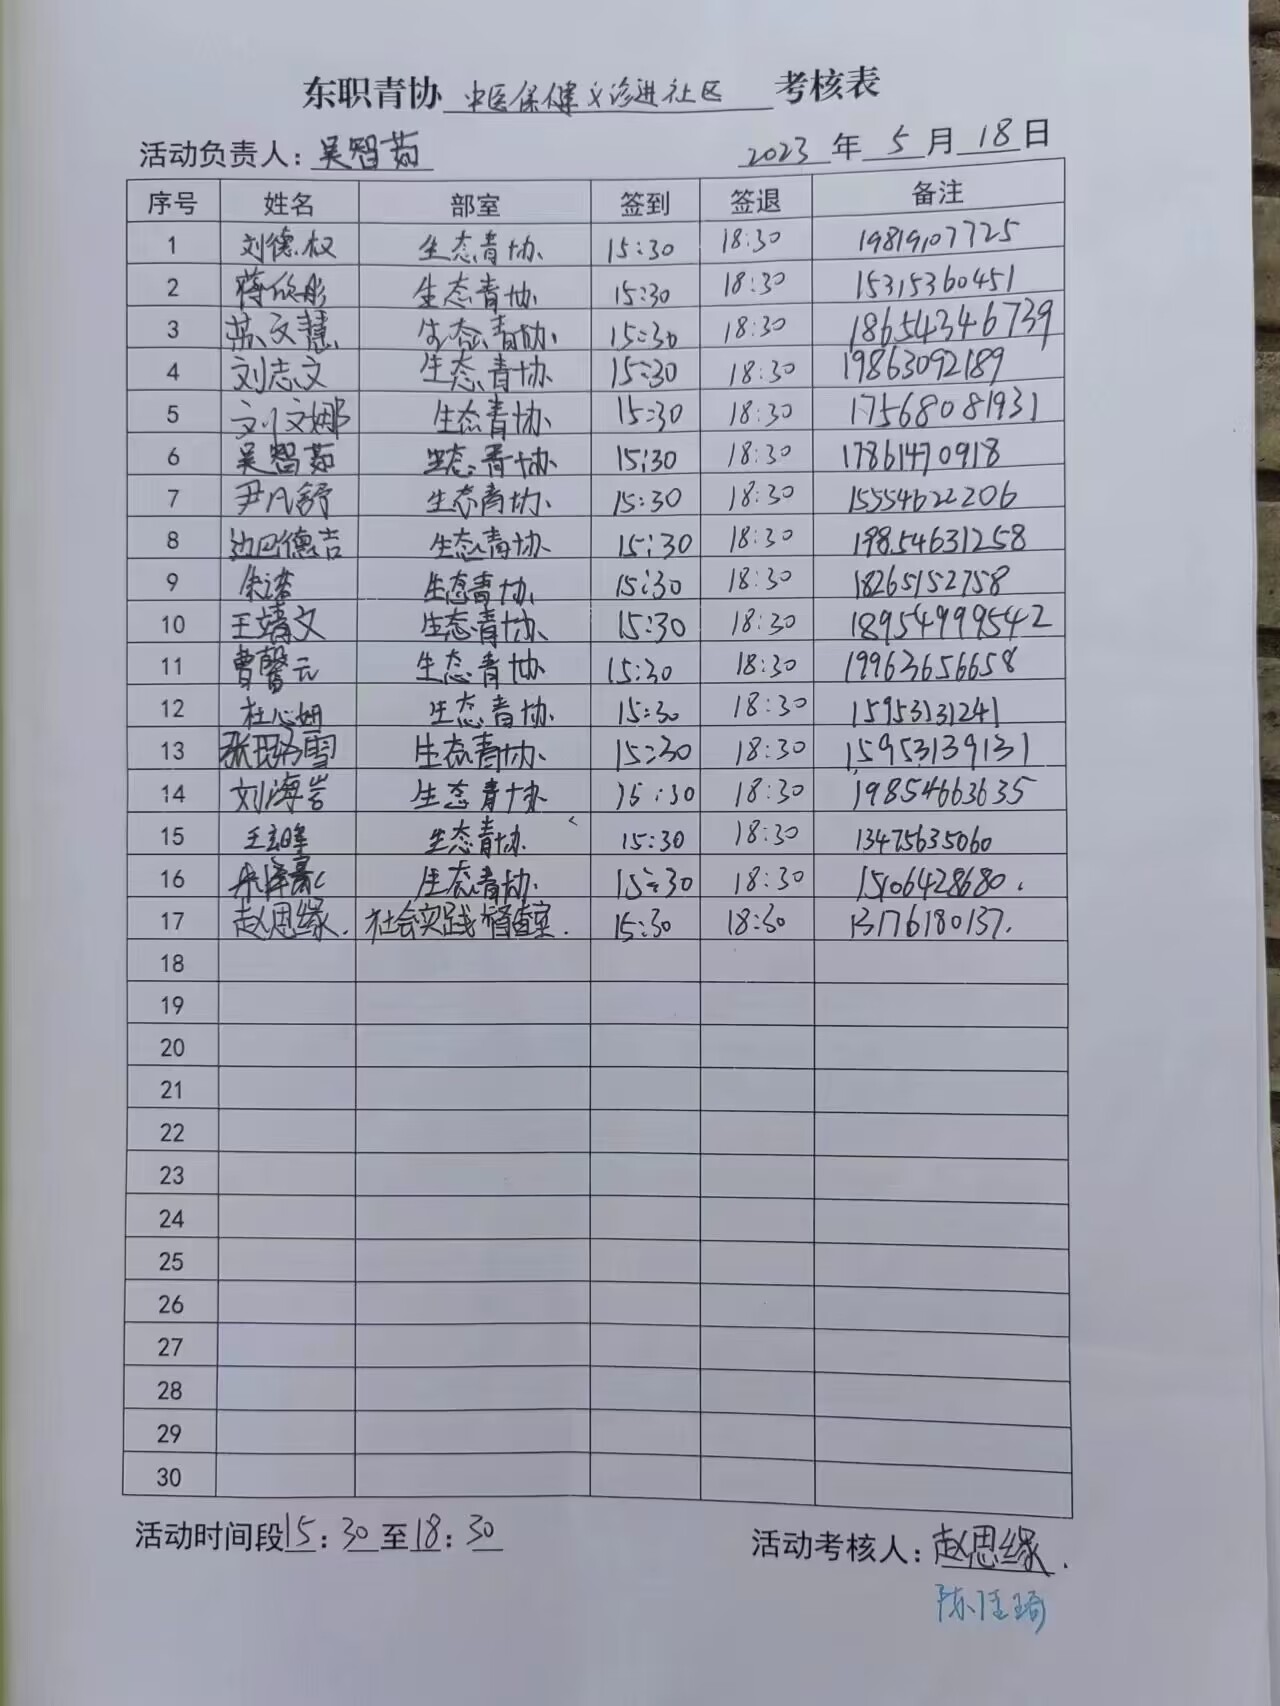 东职青协 中医保健义诊进社区 考核表
活动负责人：吴智茹 2023年5月18日
序号 姓名 部室 签到 签退 备注
1 刘德权 生态青协 15:30 18:30 19819107725
2 蒋欣彤 生态青协 15:30 18:30 15315360451
3 苏文慧 生态青协 15:30 18:30 18654346739
4 刘志文 生态青协 15:30 18:30 19863092189
5 刘文娜 生态青协 15:30 18:30 17568081931
6 吴智茹 生态青协 15:30 18:30 17861470918
7 尹凡舒 生态青协 15:30 18:30 15554622206
8 边巴德吉 生态青协 15:30 18:30 19854631258
9 生态青协 15:30 18:30 18265152758
10 王靖文 生态青协 15:30 18:30 18954999542
11 曹馨元 生态青协 15:30 18:30 19963656658
12 杜心妍 生态青协 15:30 18:30 15953131241
13 生态青协 15:30 18:30 15953139131
14 刘海岩 生态青协 15:30 18:30 19854663635
15 生态青协 15:30 18:30 13475635060
16 生态青协 15:30 18:30 15106428680.
17 赵思缘. 社会实践督查室. 15:30 18:30 13176180137.
18
19
20
21
22
23
24
25
26
27
28
29
30
活动时间段15：30至18：30 活动考核人：赵思缘.
陈佳琦